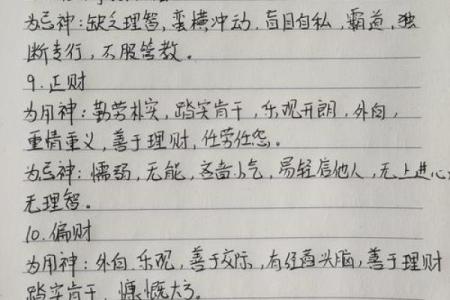 为忌神：缺乏理智，蛮横冲动，盲目自私，霸道，独
断专行，不服管教。
9.正财
为用神：勤劳朴实，踏实肯干，乐观开朗，外向，
重情重义，善于理财，任劳任怨。
为忌神：懦弱，无能，吝啬小气，易轻信他人，无上进心
无理智。
10.偏财
为用神：外向.乐观，善于交际，有经商头脑，善于理财
踏实肯干，慷慨大方。